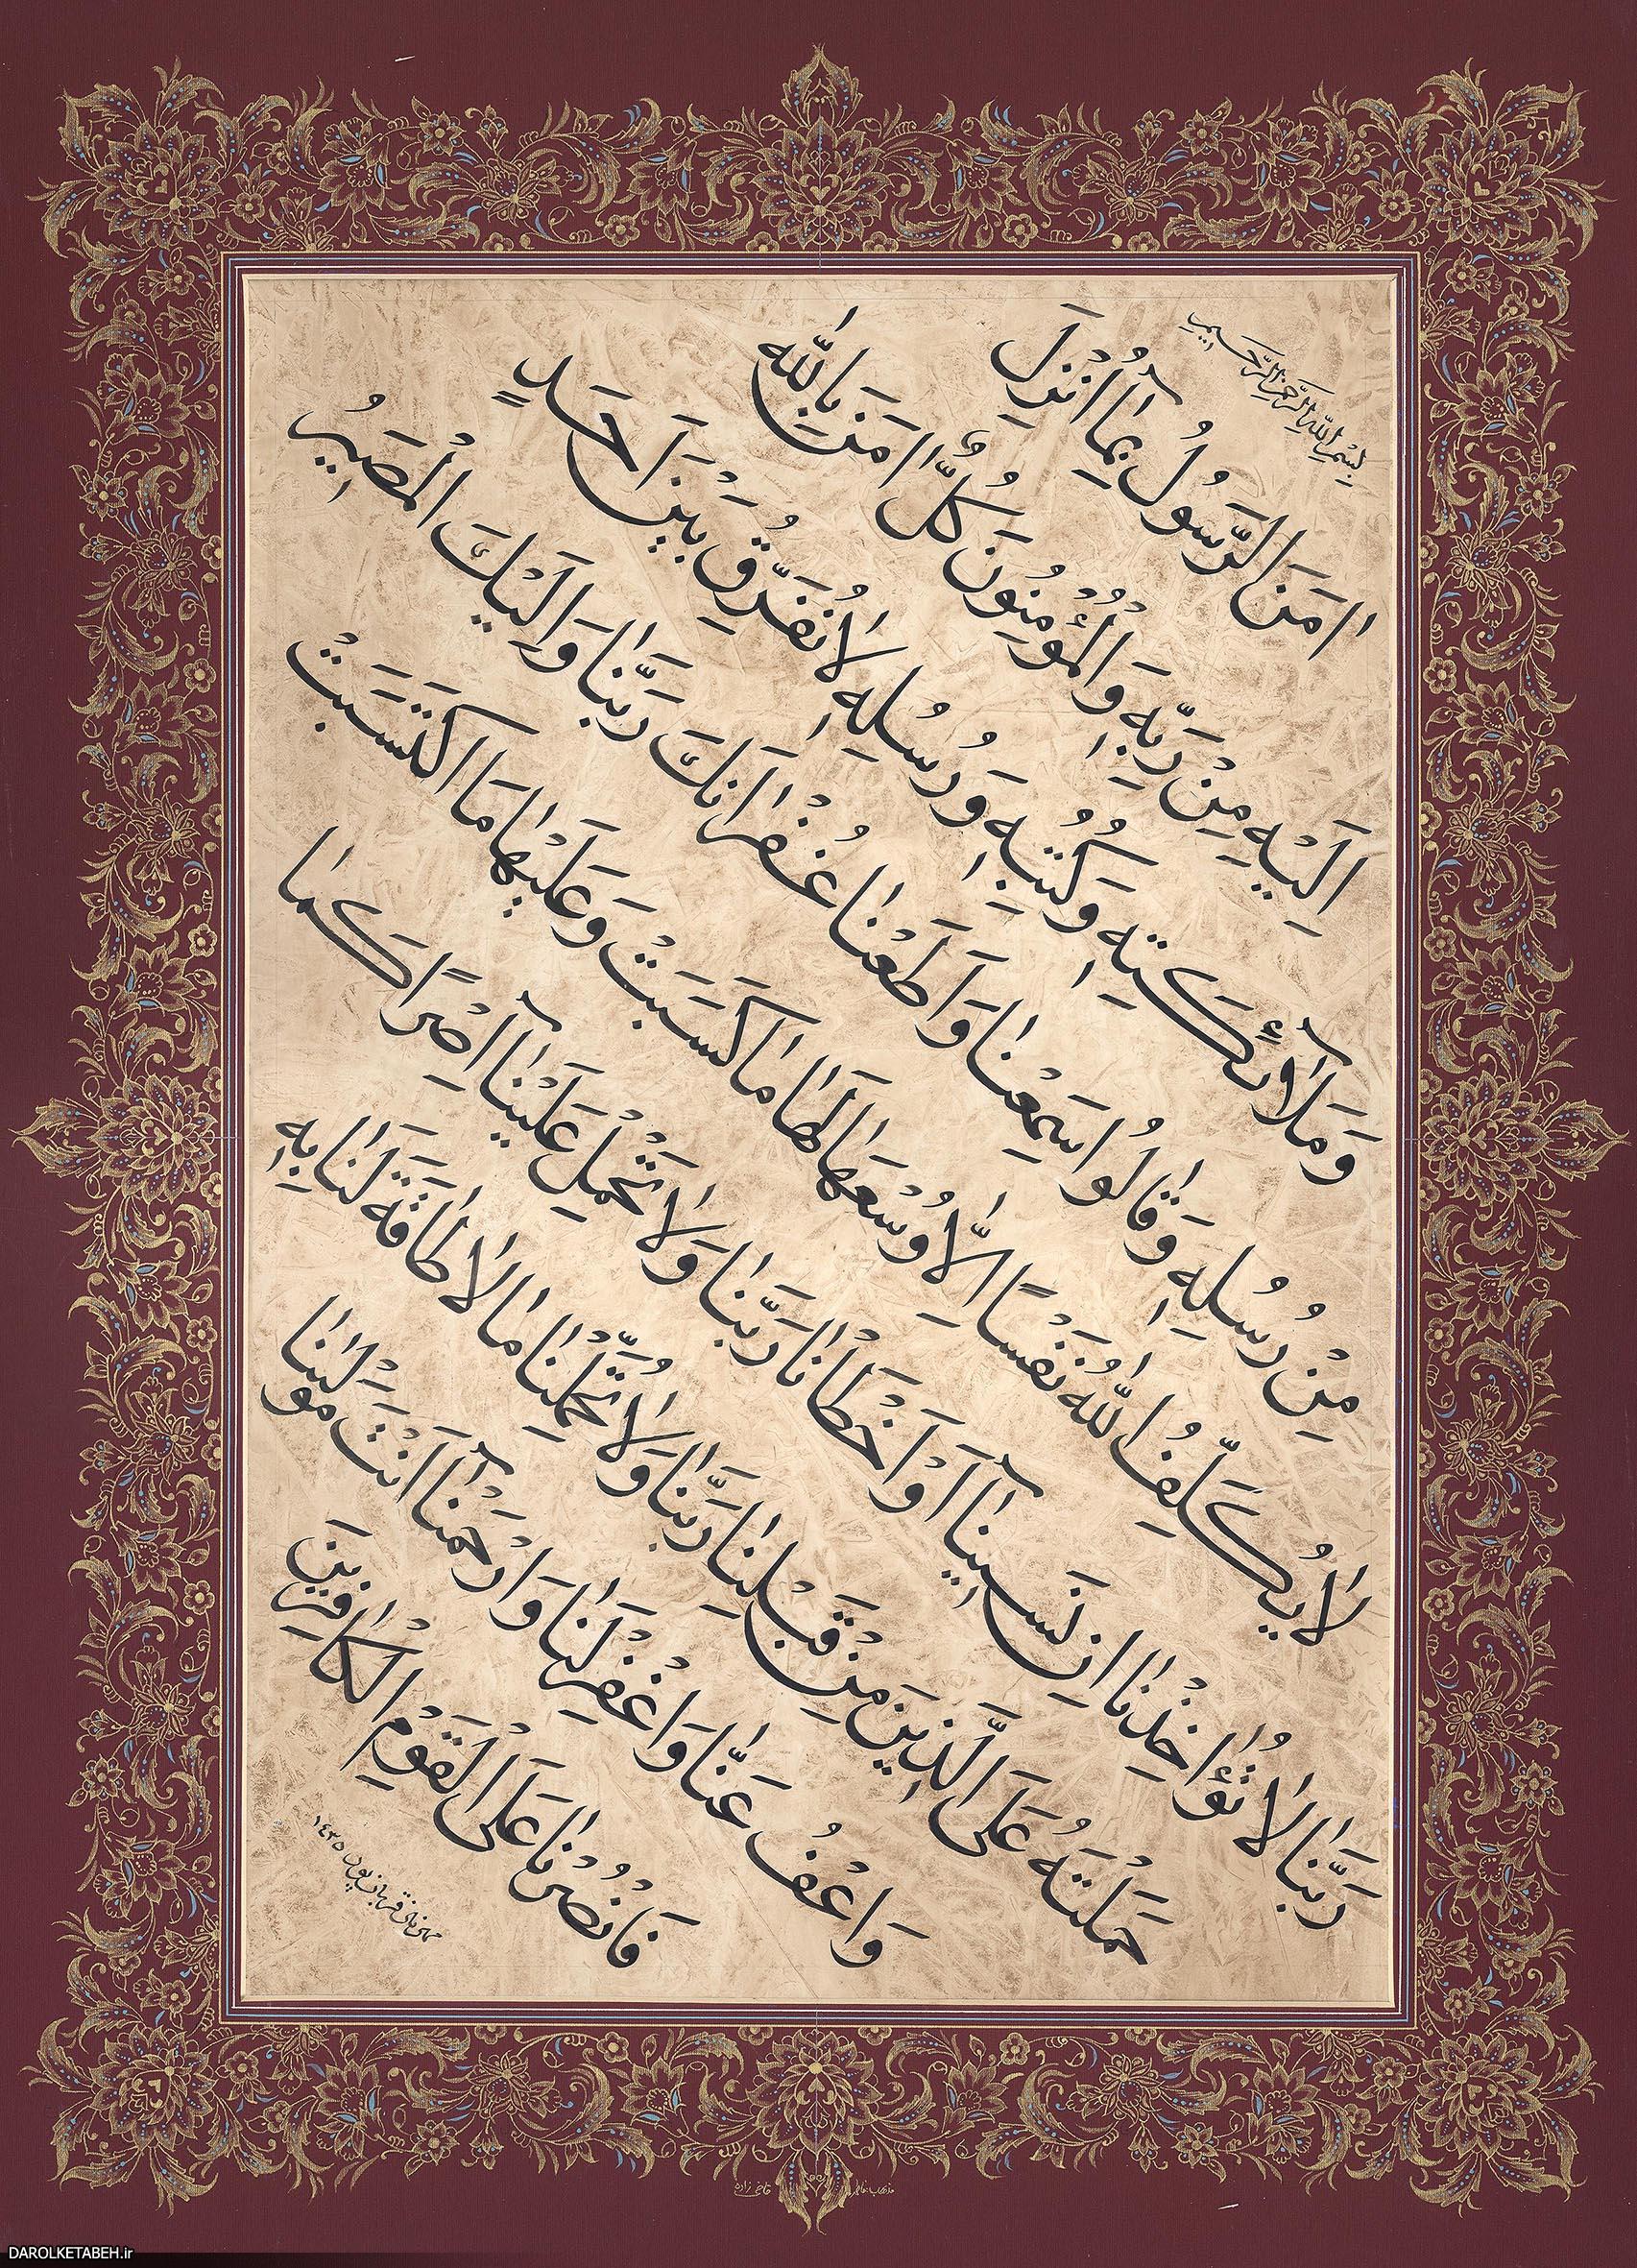 بِسْمِ اللهِ الرَّحْمنِ الرَّحيمِ
اٰمَنَ الرَّسُولُ بِمٰآ اُنْزِلَ
اِلَيْهِ مِنْ رَبِّهٖ وَالْمُؤْمِنُونَ كُلٌّ اٰمَنَ بِاللّٰهِ
وَمَلٰآئِكَتِهٖ وَكُتُبِهٖ وَرُسُلِهٖ لٰانُفَرِّقُ بَيْنَ اَحَدٍ
مِنْ رُسُلِهٖ وَقٰالُوا سَمِعْنٰا وَاَطَعْنٰا غُفْرٰانَكَ رَبَّنٰا وَاِلَيْكَ الْمَصٖيرُ
لٰايُكَلِّفُ اللّٰهُ نَفْسًا اِلّٰا وُسْعَهٰا لَهٰا مٰا كَسَبَتْ وَعَلَيْهٰا مَا اكْتَسَبَتْ
رَبَّنٰا لٰا تُؤٰاخِذْنٰا اِنْ نَسٖينٰآ اَوْ اَخْطَاْنٰا رَبَّنٰا وَلٰا تَحْمِلْ عَلَيْنٰآ اِصْرًا كَمٰا
حَمَلْتَهُ عَلَى الَّذٖينَ مِنْ قَبْلِنٰا رَبَّنٰا وَلٰا تُحَمِّلْنٰا مٰا لٰا طٰاقَةَ لَنٰا بِهٖ
وَاعْفُ عَنّٰا وَاغْفِرْ لَنٰا وَارْحَمْنٰآ اَنْتَ مَوْلٰينٰا
فَانْصُرْنٰا عَلَى الْقَوْمِ الْكٰافِرٖينَ
قربان پور ١٤٣٥
قاضی زاده
DAROLKETABEH.ir